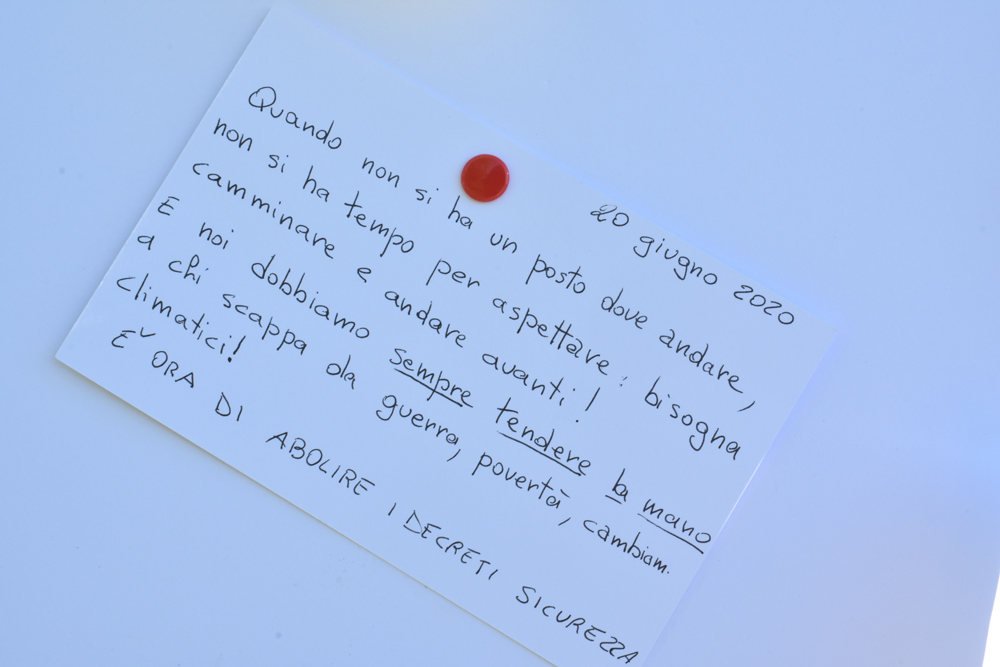 20 giugno 2020
Quando non si ha un posto dove andare,
non si ha tempo per aspettare: bisogna
camminare e andare avanti!
E noi dobbiamo sempre tendere la mano
a chi scappa da guerra, povertà, cambiam.
climatici!
E' ORA DI ABOLIRE I DECRETI SICUREZZA